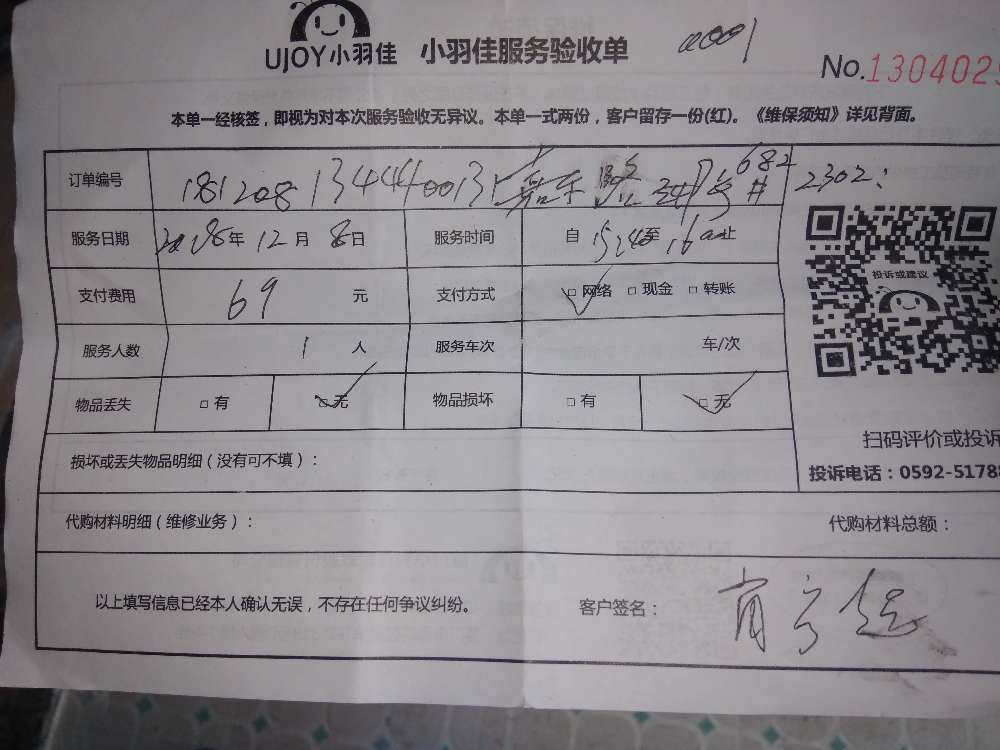 UJOY小羽佳 小羽佳服务验收单 No.130402
本单一经核签，即视为对本次服务验收无异议。本单一式两份，客户留存一份(红)。《维保须知》详见背面。
订单编号 181208 1344400131 682 2302:
服务日期 2018年12月8日 服务时间 自 至 止
支付费用 69 元 支付方式 □网络 □现金 □转账
投诉或建议
服务人数 1 人 服务车次 车/次
物品丢失 □有 □无 物品损坏 □有 □无
扫码评价或投诉
损坏或丢失物品明细（没有可不填）：
投诉电话：0592-5178
代购材料明细（维修业务）： 代购材料总额：
以上填写信息已经本人确认无误，不存在任何争议纠纷。 客户签名：